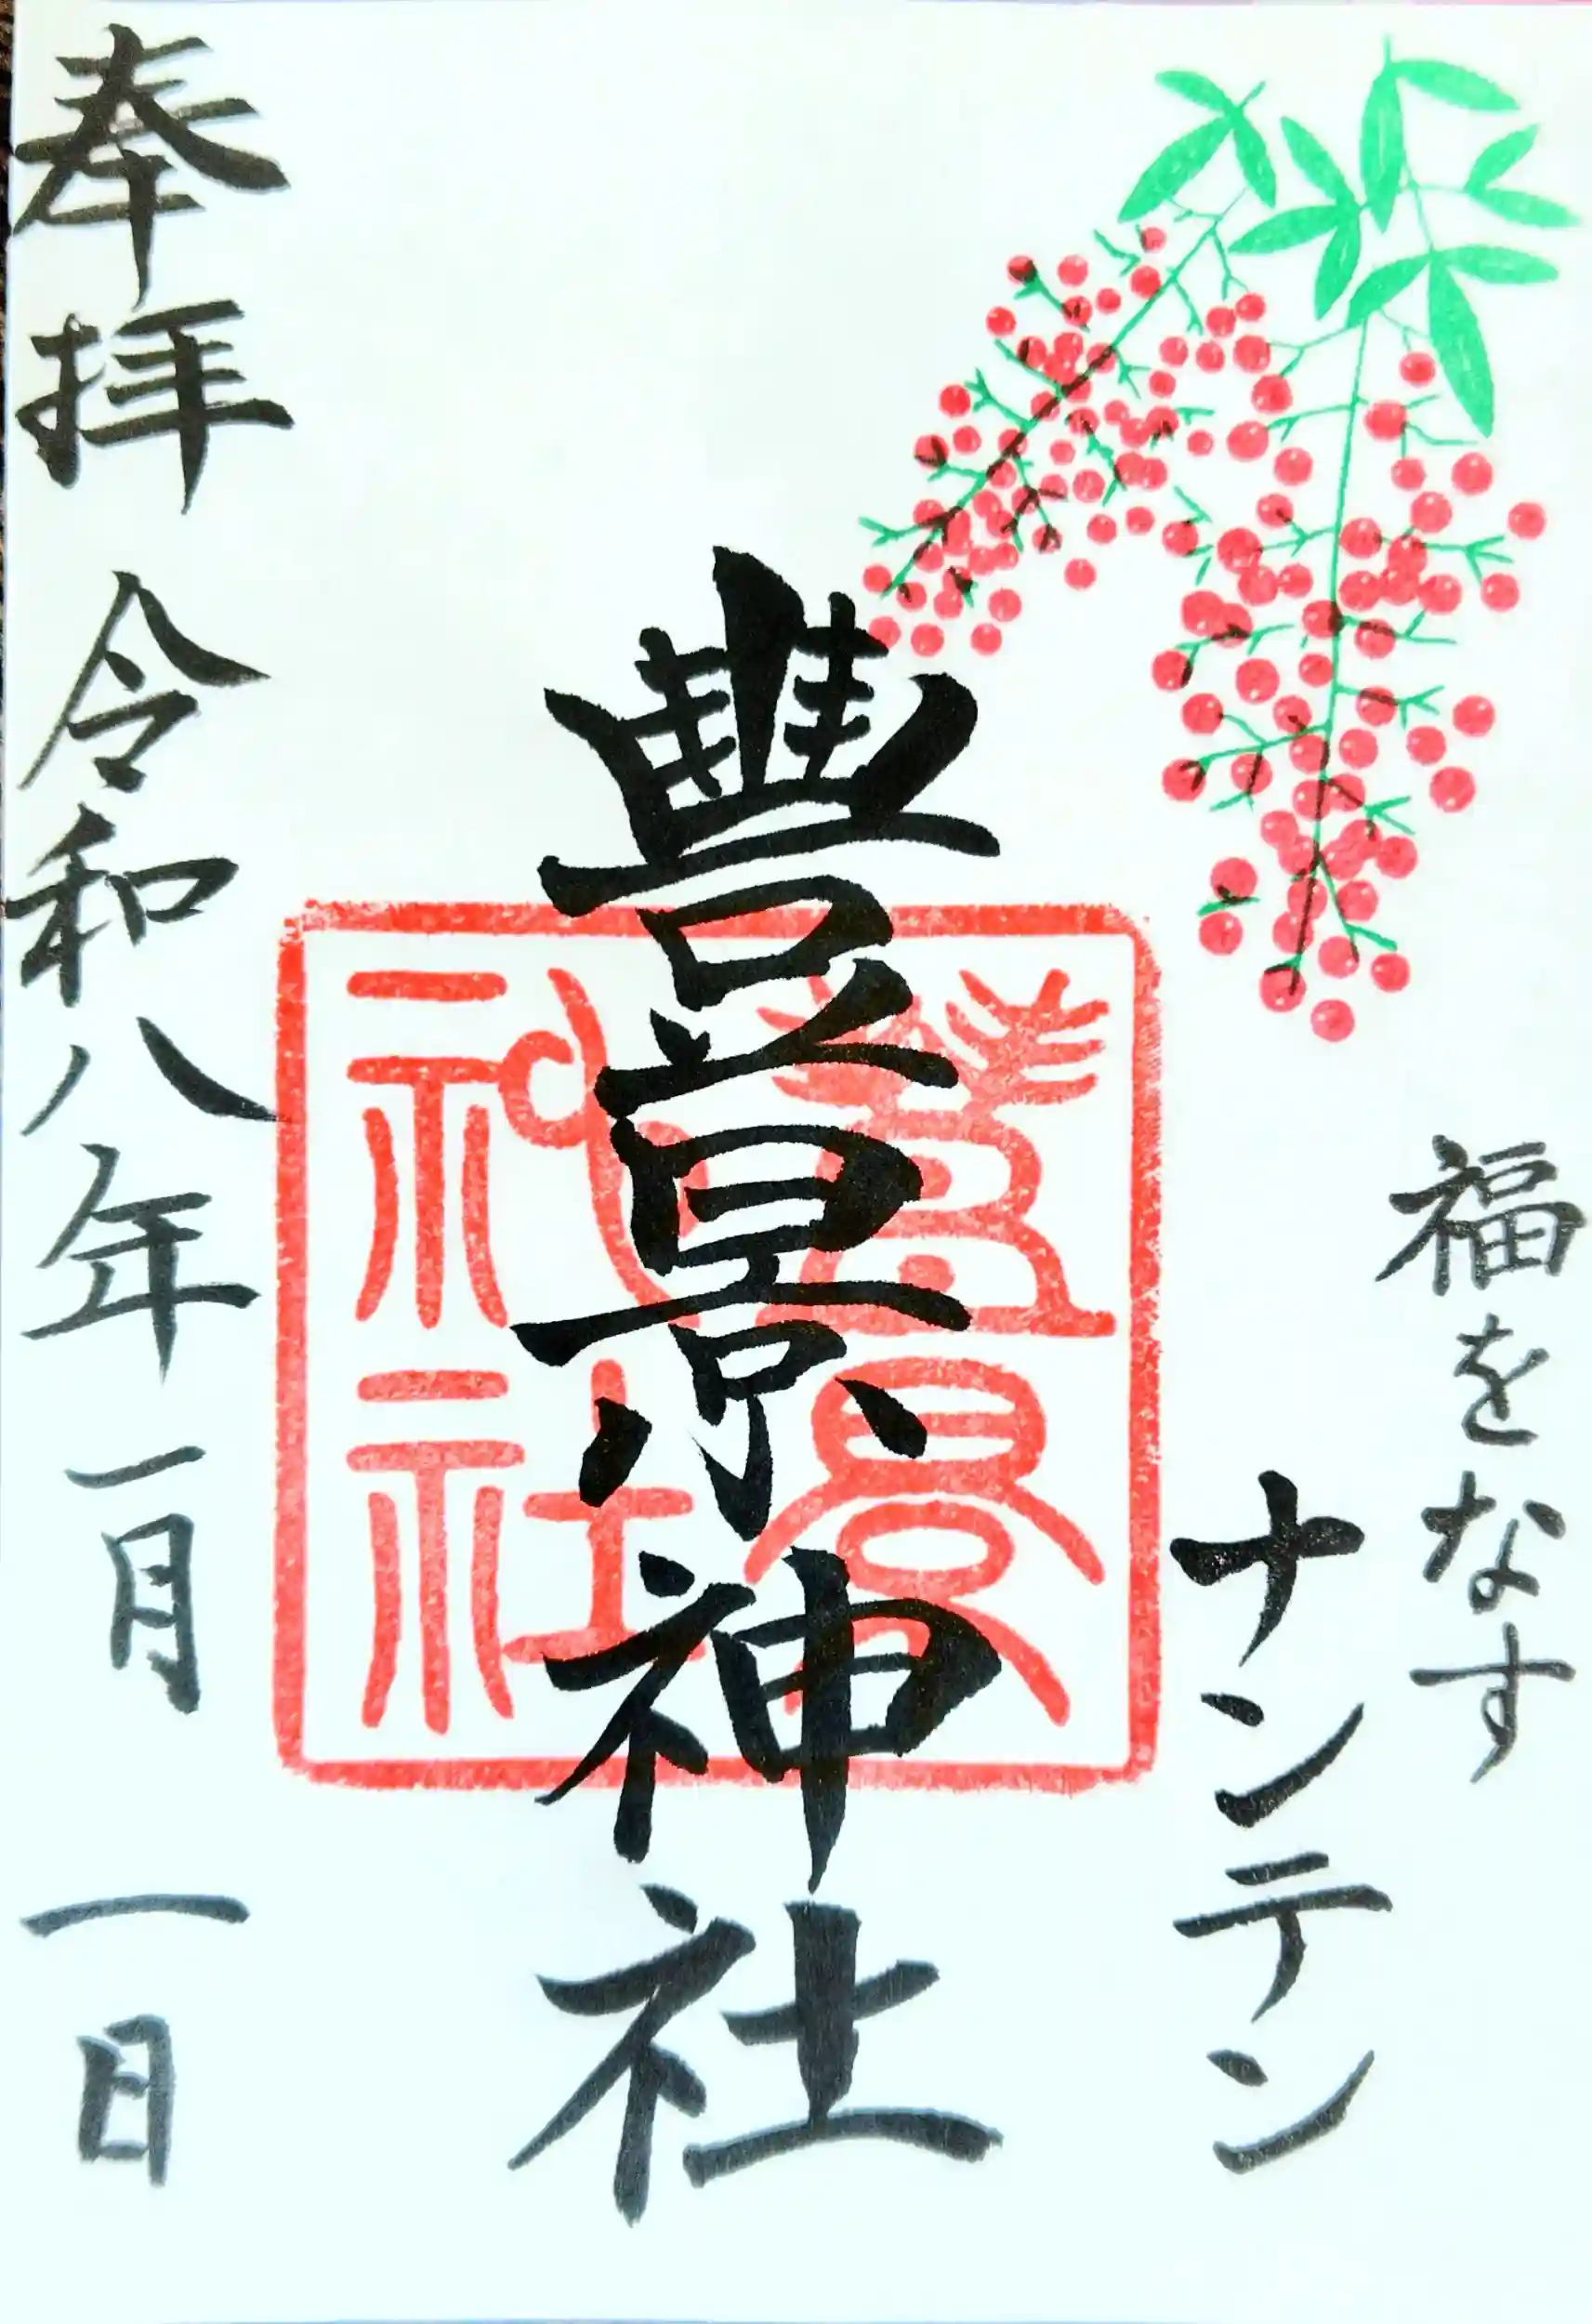 福をなす
ナンテン
豊景神社
豊景神社
奉拝 令和八年一月 一日